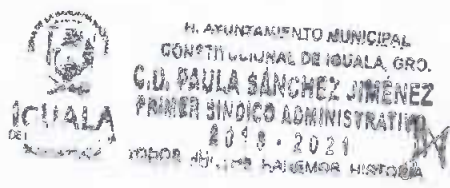 H. AYUNTAMIENTO MUNICIPAL
CONSTITUCIONAL DE IGUALA, GRO.
C.D. PAULA SÁNCHEZ JIMÉNEZ
PRIMER SINDICO ADMINISTRATI
2018 - 2021
IGUALA
HISTORIA